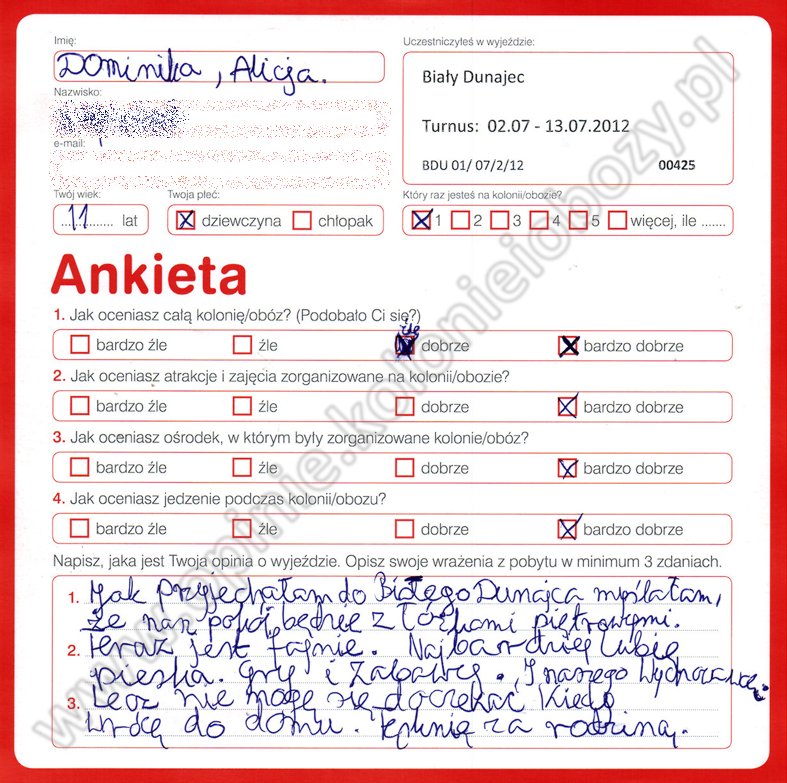 Imię:
Dominika, Alicja.
Nazwisko:
e-mail:
Uczestniczyłeś w wyjeździe:
Biały Dunajec
Turnus: 02.07 - 13.07.2012
BDU 01/ 07/2/12 00425
Twój wiek:
11 lat
Twoja płeć:
dziewczyna chłopak
Który raz jesteś na kolonii/obozie?
1 2 3 4 5 więcej, ile .......
Ankieta
1. Jak oceniasz całą kolonię/obóz? (Podobało Ci się?)
bardzo źle źle dobrze bardzo dobrze
2. Jak oceniasz atrakcje i zajęcia zorganizowane na kolonii/obozie?
bardzo źle źle dobrze bardzo dobrze
3. Jak oceniasz ośrodek, w którym były zorganizowane kolonie/obóz?
bardzo źle źle dobrze bardzo dobrze
4. Jak oceniasz jedzenie podczas kolonii/obozu?
bardzo źle źle dobrze bardzo dobrze
Napisz, jaka jest Twoja opinia o wyjeździe. Opisz swoje wrażenia z pobytu w minimum 3 zdaniach.
1. Jak przyjechałam do Białego Dunajca myślałam,
że nasz pokój będzie z łóżkami piętrowymi.
2. teraz jest fajnie. Najbardziej lubię
pieska. gry i zabawy. I naszego wychowawcę
3. Lecz nie mogę się doczekać kiedy
wrócę do domu. Tęsknię za rodziną.
www.opinie.kolonieiobozy.pl